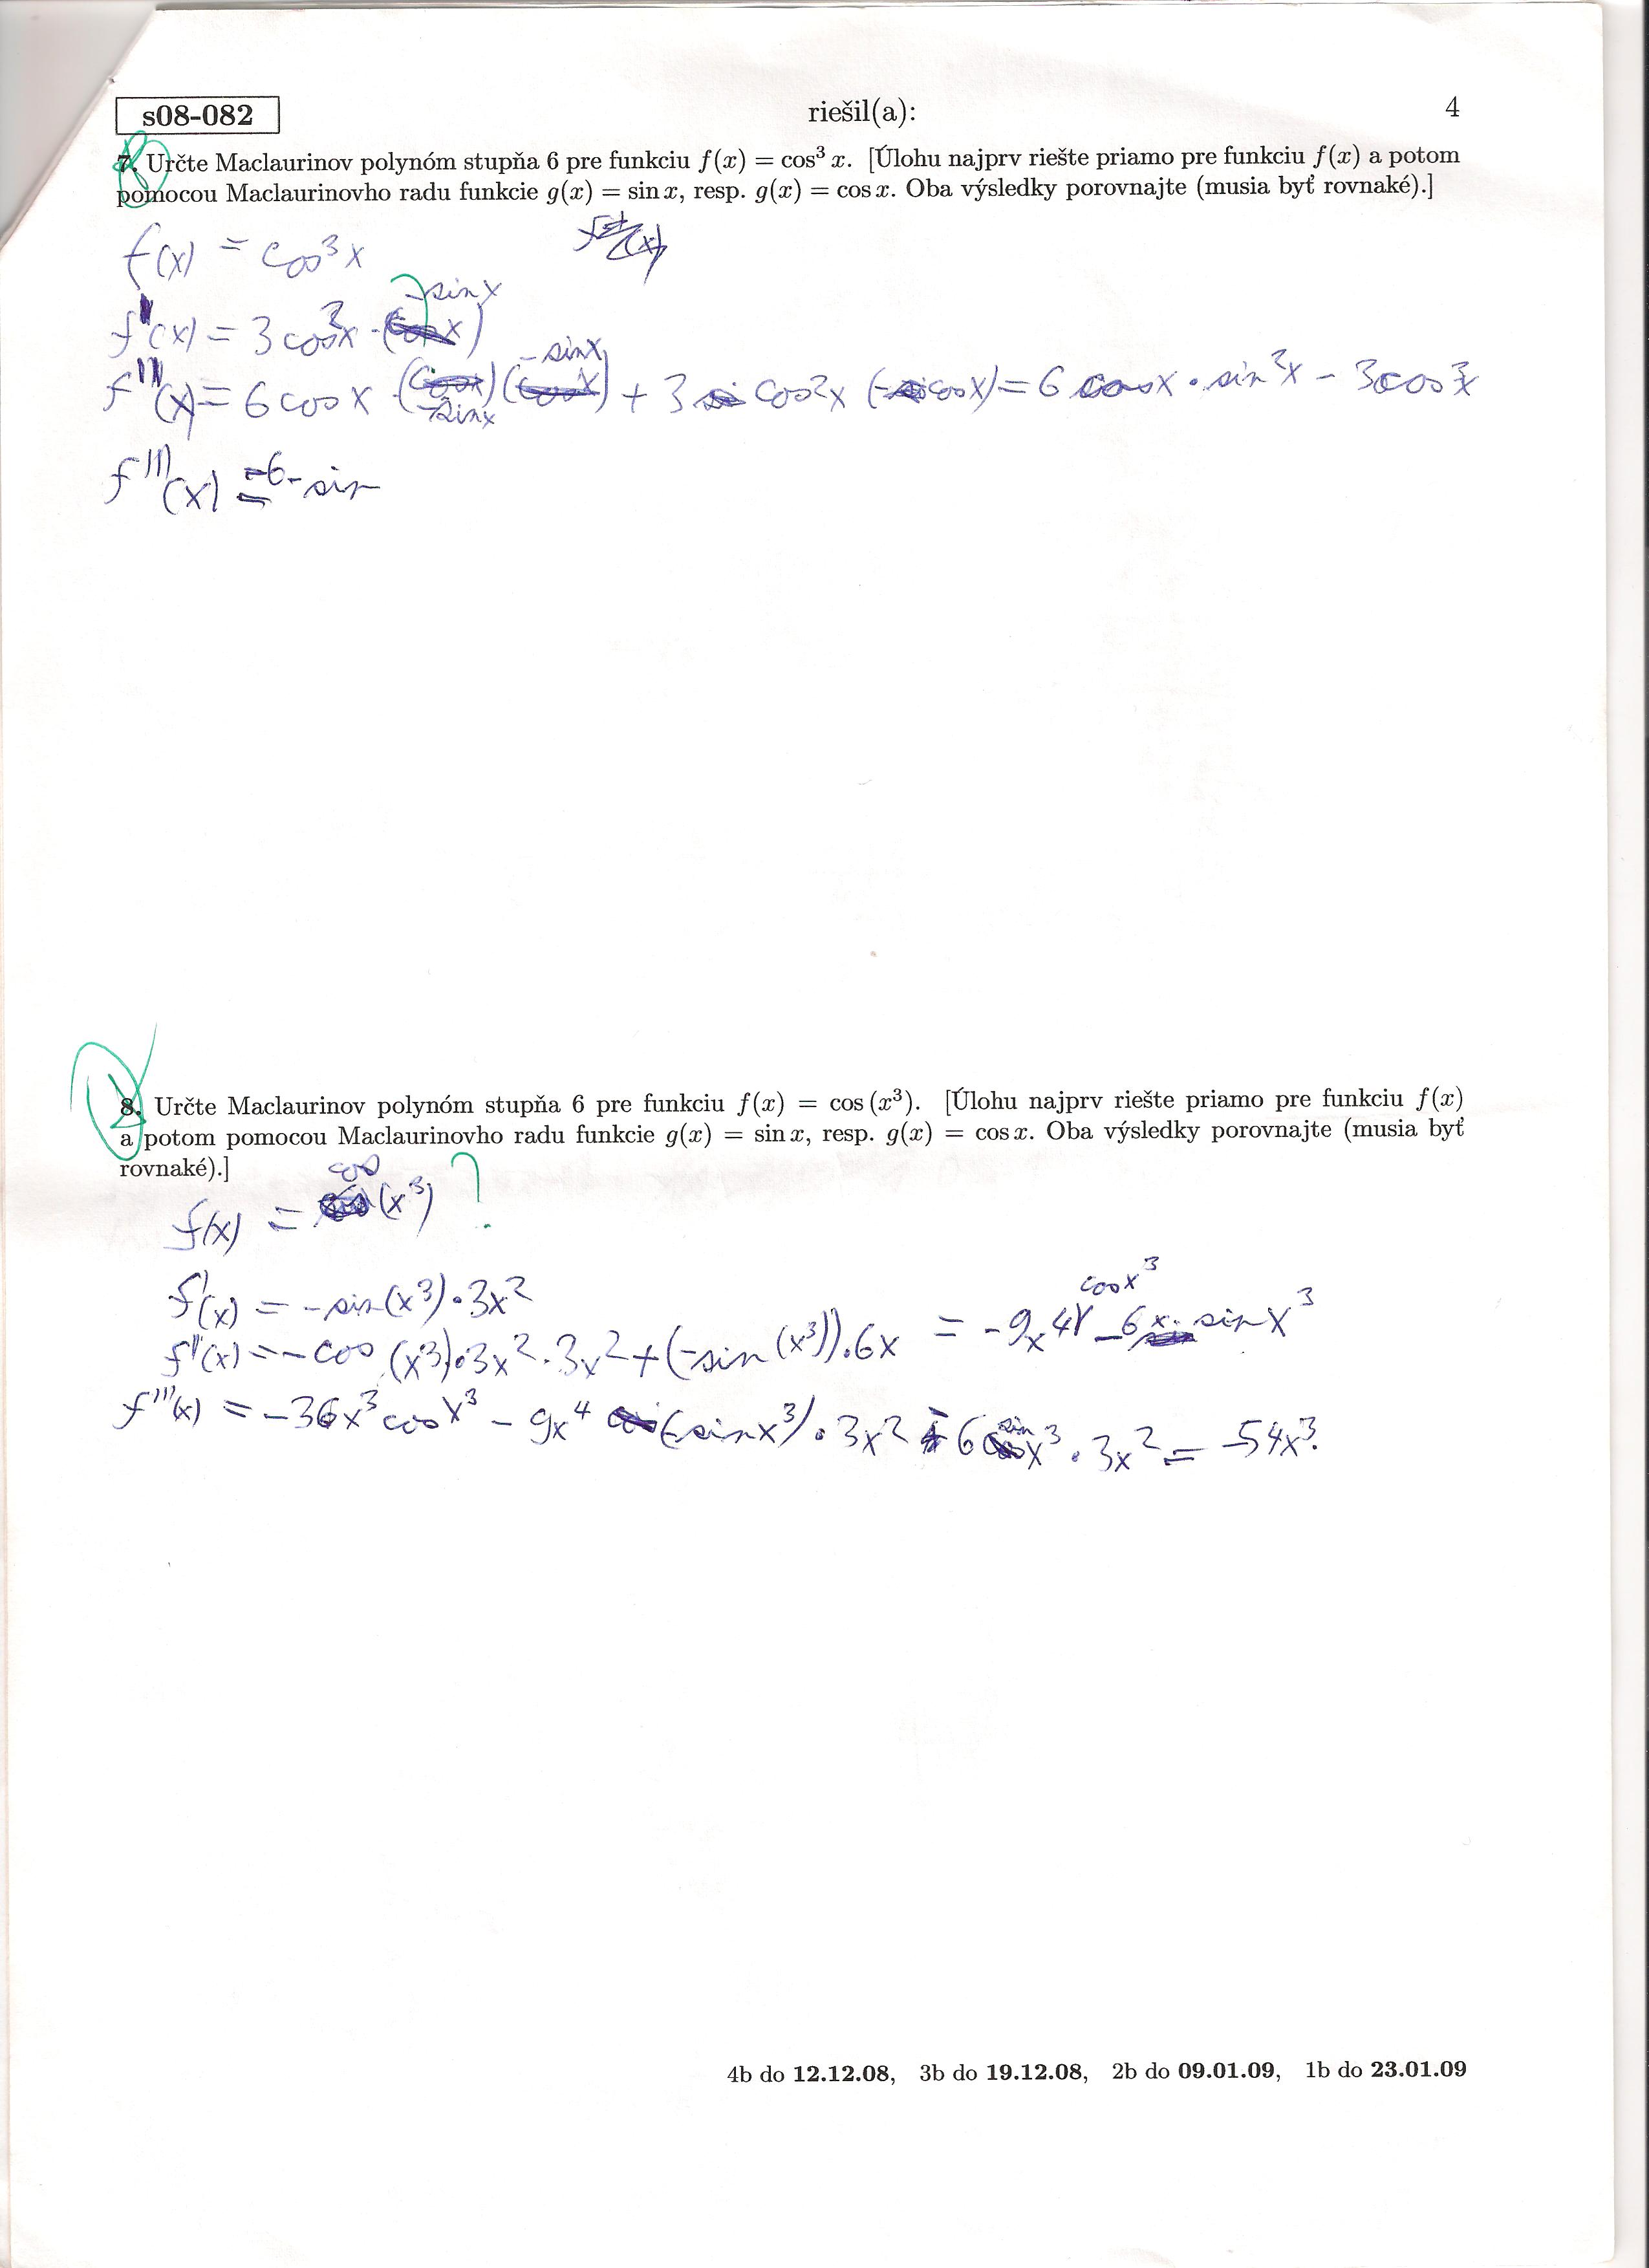 s08-082 riešil(a): 4
7. Určte Maclaurinov polynóm stupňa 6 pre funkciu f(x) = cos³ x. [Úlohu najprv riešte priamo pre funkciu f(x) a potom
pomocou Maclaurinovho radu funkcie g(x) = sin x, resp. g(x) = cos x. Oba výsledky porovnajte (musia byť rovnaké).]
f(x) = cos³x
f'(x) = 3 cos²x · (-sinx)
f''(x) = 6 cosx · (-sinx)(-sinx) + 3 cos²x (-cosx) = 6 cosx · sin²x - 3cos³x
f'''(x) = -6 - sin
8. Určte Maclaurinov polynóm stupňa 6 pre funkciu f(x) = cos (x³). [Úlohu najprv riešte priamo pre funkciu f(x)
a potom pomocou Maclaurinovho radu funkcie g(x) = sin x, resp. g(x) = cos x. Oba výsledky porovnajte (musia byť
rovnaké).]
f(x) = cos (x³) ?
f'(x) = -sin(x³) · 3x²
f''(x) = -cos (x³) · 3x² · 3x² + (-sin (x³)) · 6x = -9x⁴ cosx³ - 6x · sinx³
f'''(x) = -36x³ cosx³ - 9x⁴ (-sinx³) · 3x² - 6 sinx³ · 3x² = -54x³ ·
4b do 12.12.08, 3b do 19.12.08, 2b do 09.01.09, 1b do 23.01.09